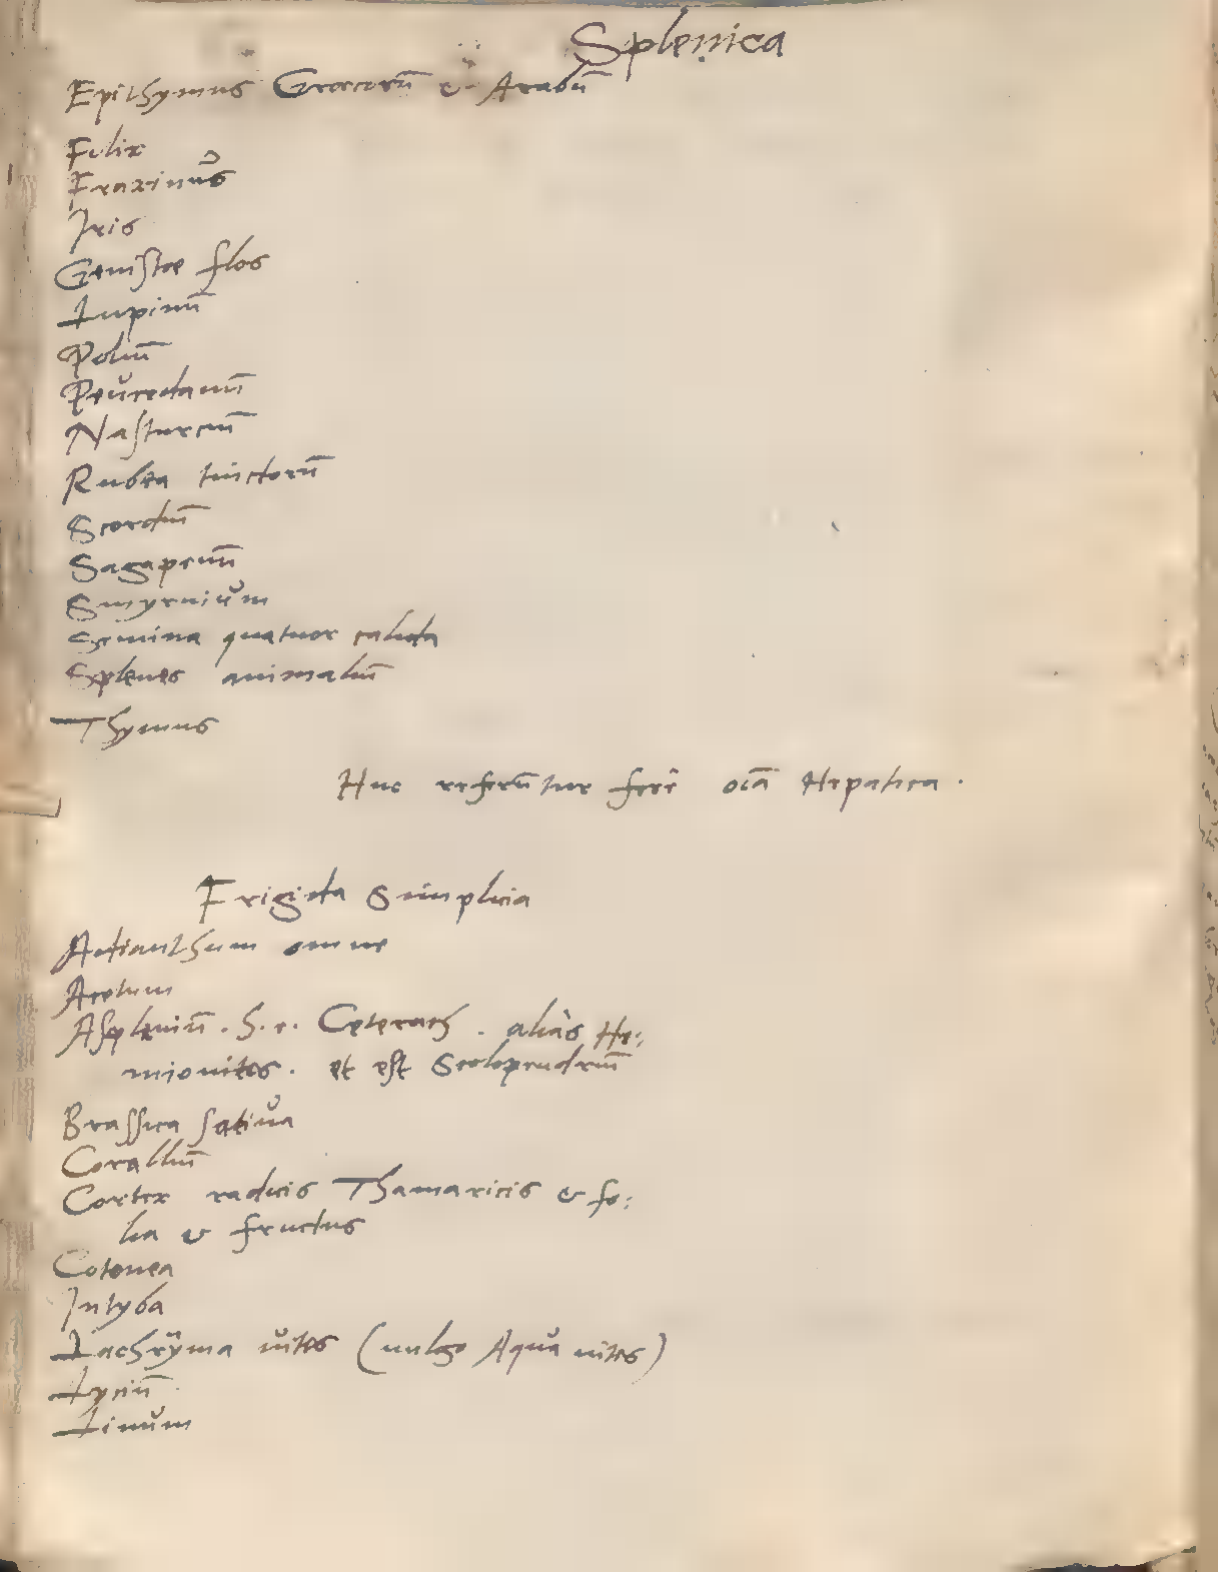 Splenica
Epithymus Graecorū & Arabū
Felix
Fraxinus
Iris
Genistae flos
Lupinū
Poliū
Peucedanū
Nasturciū
Rubea tinctorū
Scordiū
Sagapenū
Smyrnium
Semina quatuor calida
Splenes animaliū
Thymus
Huc referūtur ferè oīa Hepatica.
Frigida Simplicia
Adianthum omne
Acetum
Aspleniū. h. e. Ceterach. aliàs He:
mionites. et est Scolopendriū
Brassica sativa
Coralliū
Cortex radicis Thamaricis & fo:
lia & fructus
Cotonea
Intyba
Lachryma vites (vulgo Aqua vites)
Lyciū
Linum